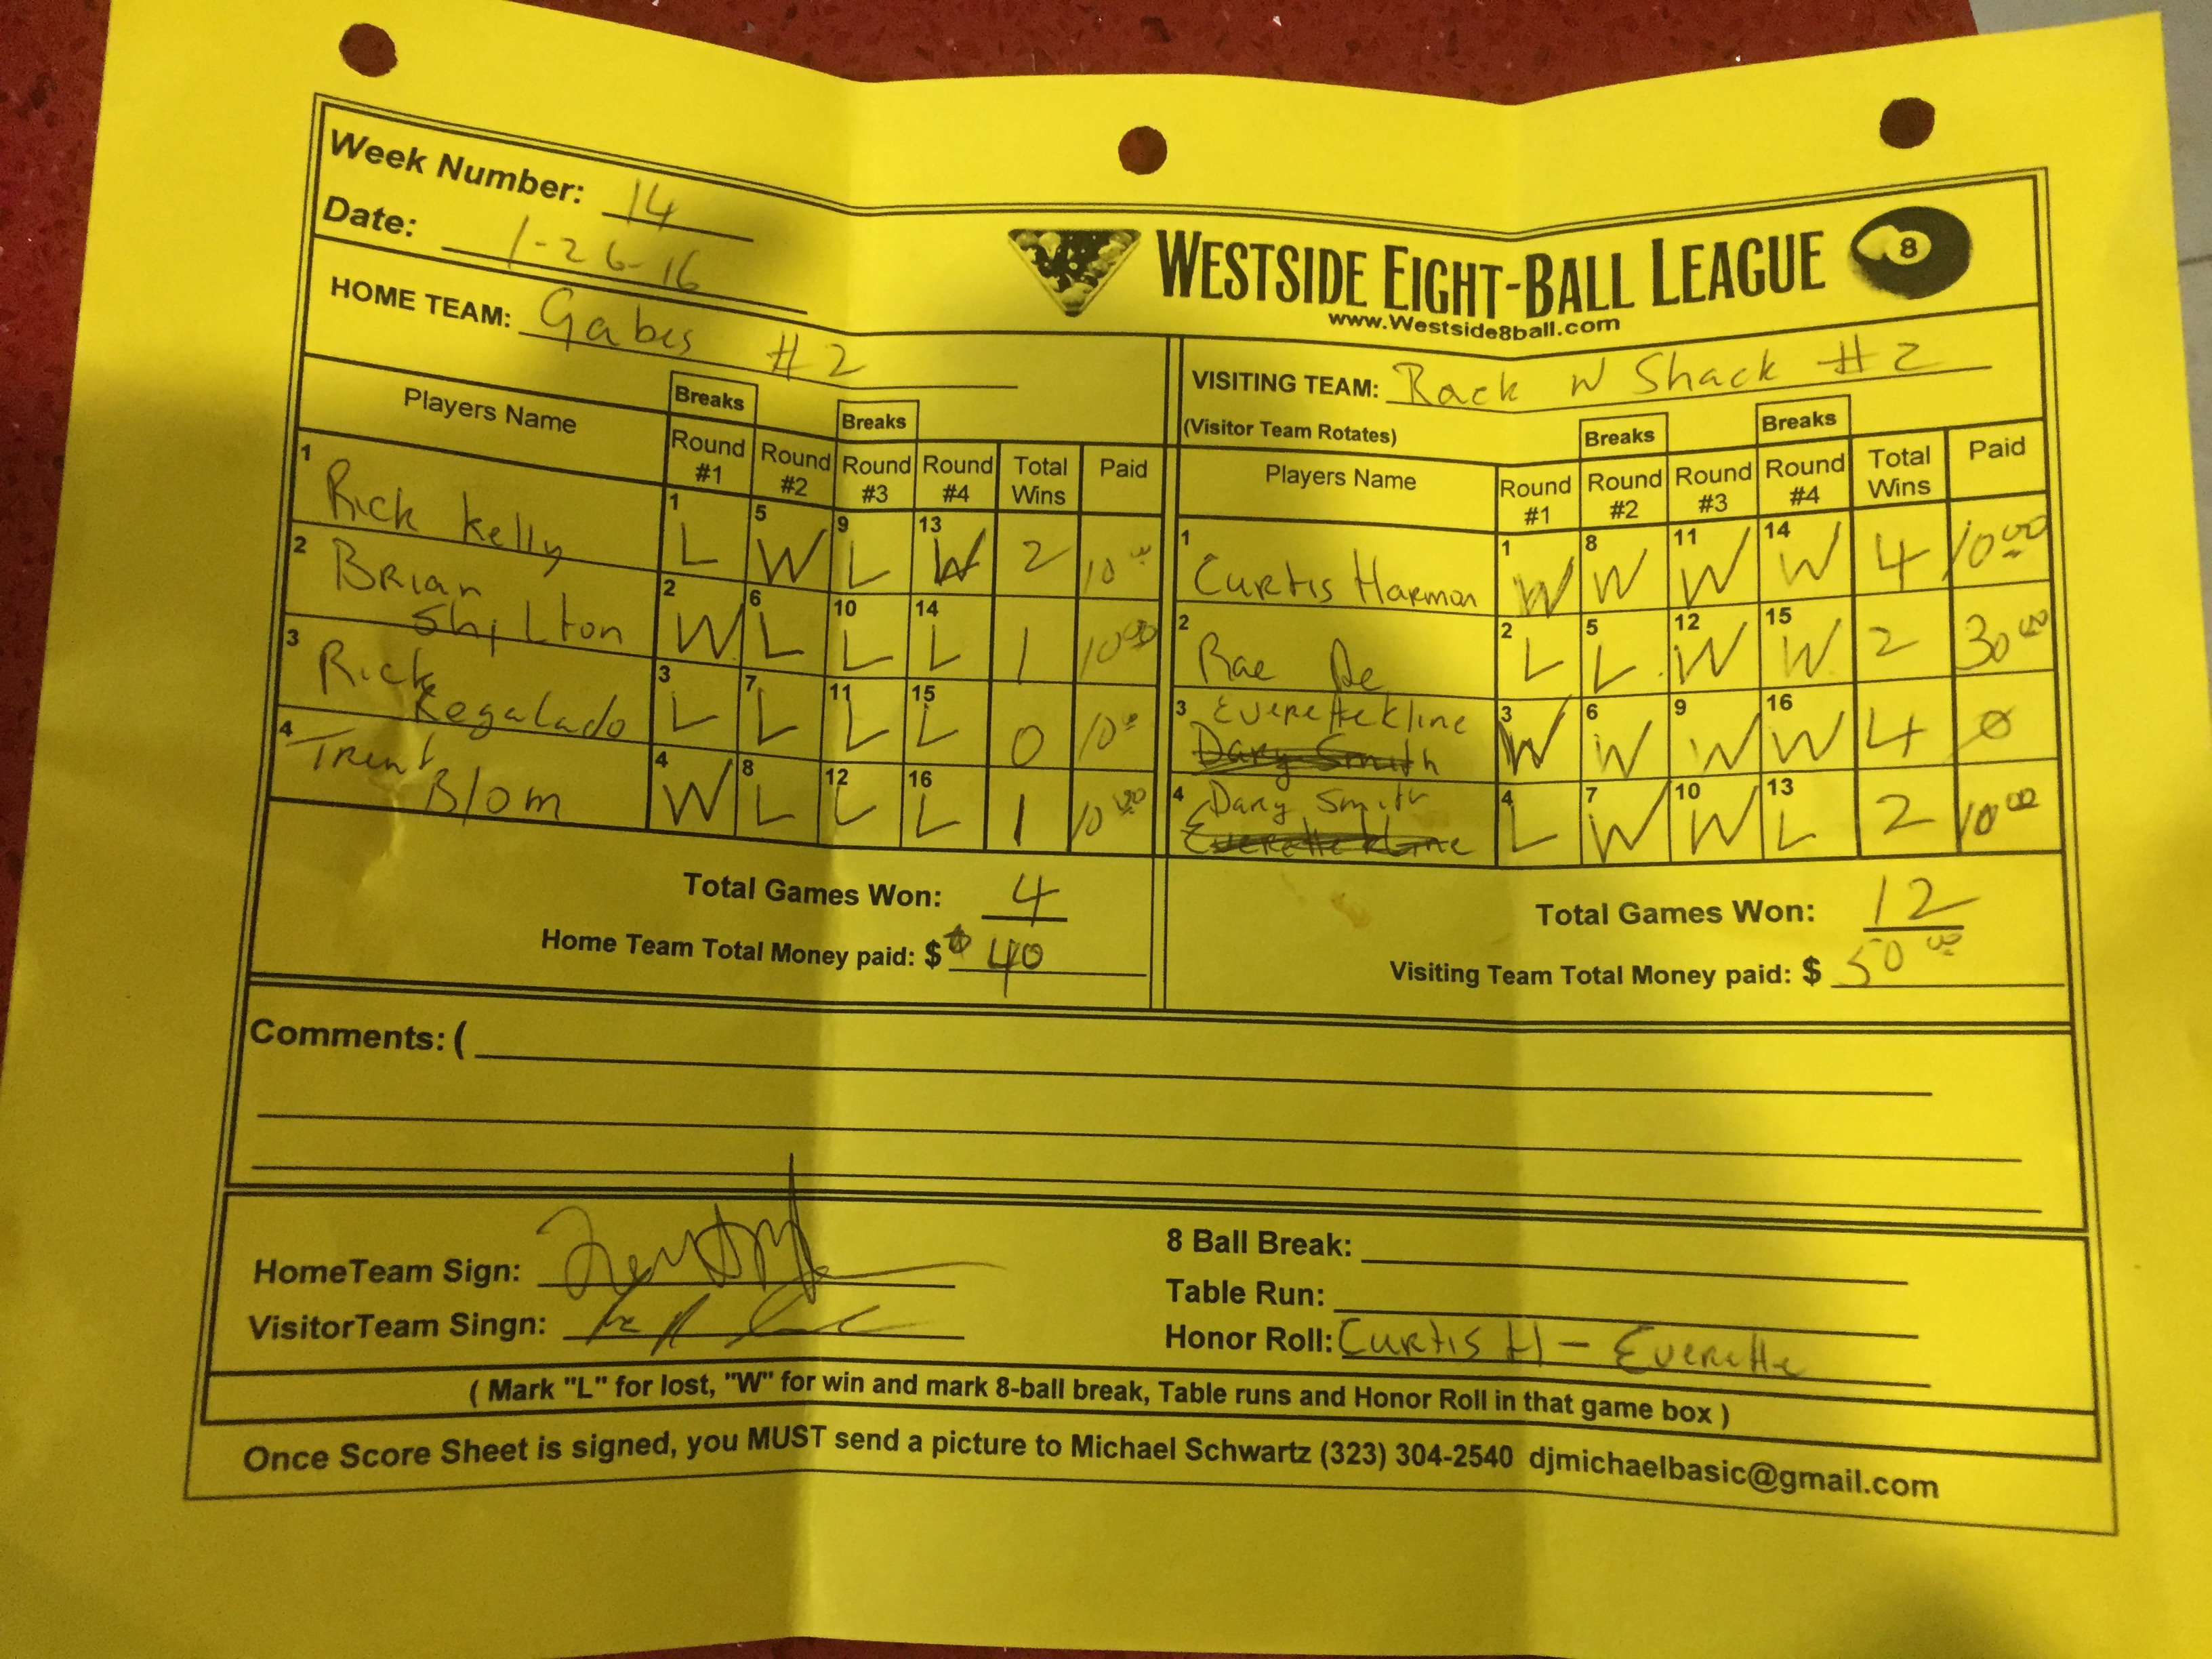 Week Number: 14
Date: 1-26-16
WESTSIDE EIGHT-BALL LEAGUE 8
www.Westside8ball.com
HOME TEAM: Gabes #2
VISITING TEAM: Rack N Shack #2
(Visitor Team Rotates)
Breaks Breaks
Players Name Round #1 Round #2 Round #3 Round #4 Total Wins Paid
1 Rick Kelly 1 L 5 W 9 L 13 W 2 10.00
2 Brian Shilton 2 W 6 L 10 L 14 L 1 10.00
3 Rick Regalado 3 L 7 L 11 L 15 L 0 10.00
4 Trent Blom 4 W 8 L 12 L 16 L 1 10.00
Total Games Won: 4
Home Team Total Money paid: $ 40
Breaks Breaks
Players Name Round #1 Round #2 Round #3 Round #4 Total Wins Paid
1 Curtis Harmon 1 W 8 W 11 W 14 W 4 10.00
2 Rae De 2 L 5 L 12 W 15 W 2 30.00
3 Everette Kline 3 W 6 W 9 W 16 W 4 Ø
Dary Smith
4 Dary Smith 4 L 7 W 10 W 13 L 2 10.00
Everette Kline
Total Games Won: 12
Visiting Team Total Money paid: $ 50.00
Comments: (
HomeTeam Sign:
VisitorTeam Singn:
8 Ball Break:
Table Run:
Honor Roll: Curtis H - Everette
( Mark "L" for lost, "W" for win and mark 8-ball break, Table runs and Honor Roll in that game box )
Once Score Sheet is signed, you MUST send a picture to Michael Schwartz (323) 304-2540 djmichaelbasic@gmail.com